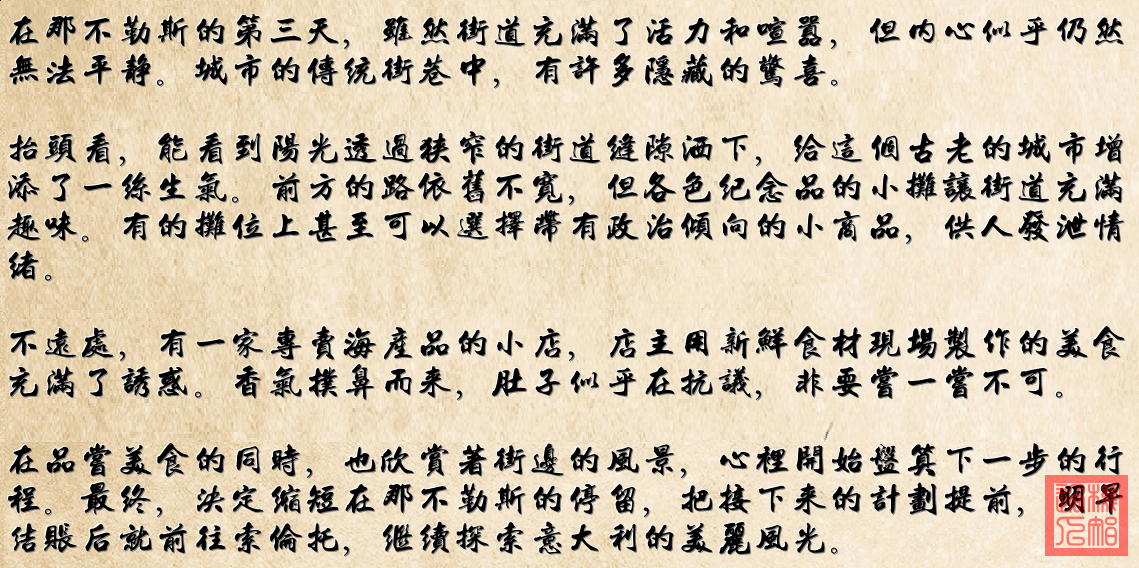 在那不勒斯的第三天，雖然街道充滿了活力和喧囂，但內心似乎仍然
無法平靜。城市的傳統街巷中，有許多隱藏的驚喜。
抬頭看，能看到陽光透過狹窄的街道縫隙洒下，給這個古老的城市增
添了一絲生氣。前方的路依舊不寬，但各色紀念品的小攤讓街道充滿
趣味。有的攤位上甚至可以選擇帶有政治傾向的小商品，供人發泄情
緒。
不遠處，有一家專賣海產品的小店，店主用新鮮食材現場製作的美食
充滿了誘惑。香氣撲鼻而來，肚子似乎在抗議，非要嘗一嘗不可。
在品嘗美食的同時，也欣賞著街邊的風景，心裡開始盤算下一步的行
程。最終，決定縮短在那不勒斯的停留，把接下來的計劃提前，明早
結賬后就前往索倫托，繼續探索意大利的美麗風光。